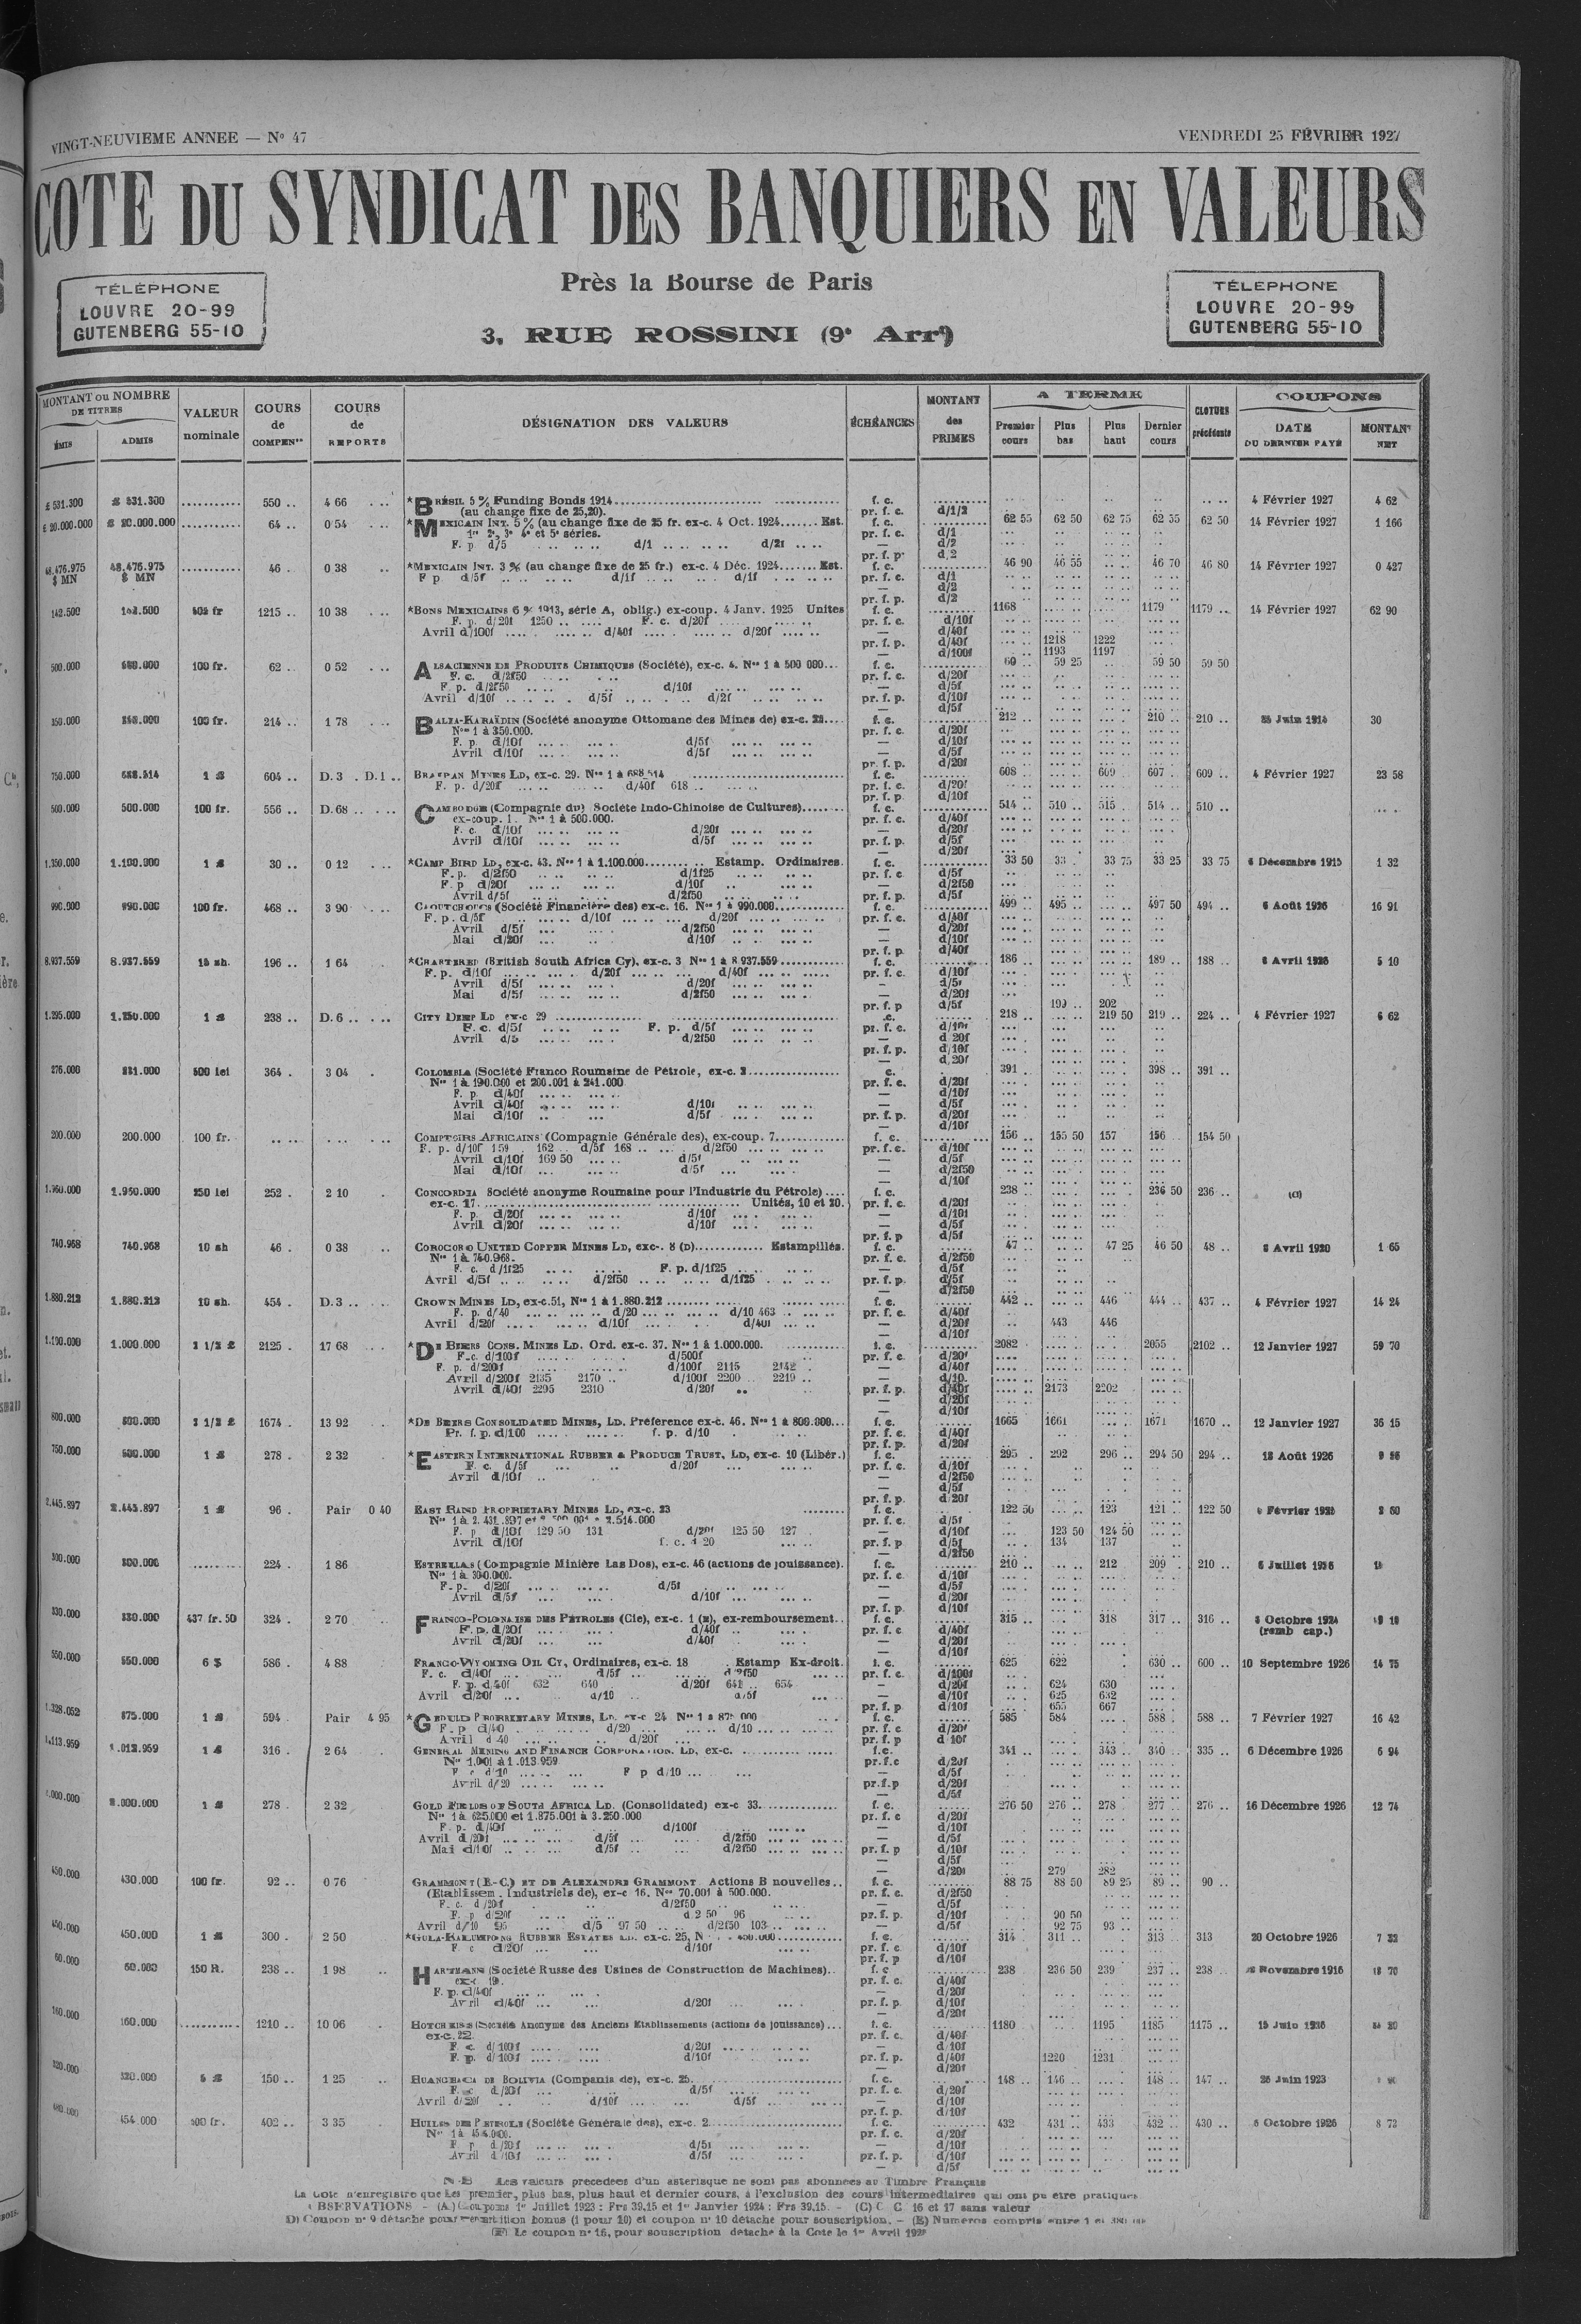 VINGT-NEUVIEME ANNEE — N° 47
VENDREDI 25 FÉVRIER 1927
COTE DU SYNDICAT DES BANQUIERS EN VALEURS
TÉLÉPHONE
LOUVRE 20-99
GUTENBERG 55-10
Près la Bourse de Paris
3, RUE ROSSINI (9e Arrt)
TÉLÉPHONE
LOUVRE 20-99
GUTENBERG 55-10
MONTANT ou NOMBRE DE TITRES
ÉMIS ADMIS
VALEUR nominale
COURS de COMPENon
COURS de REPORTS
DÉSIGNATION DES VALEURS
ÉCHÉANCES
MONTANT des PRIMES
A TERME
Premier cours Plus bas Plus haut Dernier cours
CLOTURE précédente
COUPONS
DATE DU DERNIER PAYÉ MONTANT NET
£ 531.300 £ 531.300 550 .. 4 66 *BRÉSIL 5 % Funding Bonds 1914 f. c. 4 Février 1927 4 62
(au change fixe de 25,20). pr. f. c. d/1/2
£ 20.000.000 £ 20.000.000 64 .. 0 54 *MEXICAIN INT. 5 % (au change fixe de 25 fr. ex-c. 4 Oct. 1924....... Est. f. c. 62 55 62 50 62 75 62 55 62 50 14 Février 1927 1 166
1re 2e, 3e 4e et 5e séries. pr. f. c. d/1
F. p d/5 d/1 d/2f — d/2
pr. f. p. d,2
48.476.975 $ MN 48.476.975 $ MN 46 . 0 38 *MEXICAIN INT. 3 % (au change fixe de 25 fr.) ex-c. 4 Déc. 1924....... Est. f. c. 46 90 46 55 46 70 46 80 14 Février 1927 0 427
F p d/5f d/1f d/1f pr. f. c. d/1
— d/2
pr. f. p. d/2
142.500 142.500 1215 .. 10 38 *BONS MEXICAINS 6 % 1913, série A, oblig.) ex-coup. 4 Janv. 1925 Unites f. c. 1168 1179 1179 .. 14 Février 1927 62 90
F. p. d/20f 1250 F. c. d/20f pr. f. c. d/10f
Avril d/100f d/40f d/20f — d/40f
pr. f. p. d/40f 1218 1222
— d/100f 1193 1197
500.000 100 fr. 62 .. 0 52 ALSACIENNE DE PRODUITS CHIMIQUES (Société), ex-c. 4. Nos 1 à 500 000... f. c. 60 .. 59 25 59 50 59 50
F. c. d/2f50 pr. f. c. d/20f
F. p. d/2f50 d/10f — d/5f
Avril d/10f d/5f d/2f pr. f. p. d/10f
— d/5f
100 fr. 214 .. 1 78 BALIA-KARAÏDIN (Société anonyme Ottomane des Mines de) ex-c. f. c. 212 210 .. 210 .. 30
Nos 1 à 350.000. pr. f. c. d/20f
F. p. d/10f d/5f — d/10f
Avril d/10f d/5f — d/5f
pr. f. p. d/20f
750.000 1 £ 604 .. D. 3 . D. 1 .. BRAKPAN MINES LD, ex-c. 29. Nos 1 à 688.514 f. c. 608 609 607 .. 609 .. 4 Février 1927 23 58
F. p. d/20f d/40f 618 .. pr. f. c. d/20f
pr. f. p. d/10f
500.000 500.000 100 fr. 556 .. D. 68 .. CAMBODGE (Compagnie du) Société Indo-Chinoise de Cultures)....... f. c. 514 .. 510 .. 515 514 .. 510 ..
ex-coup. 1. Nos 1 à 500.000. pr. f. c. d/40f
F. c. d/10f d/20f — d/20f
Avril d/10f d/5f pr. f. p. d/5f
— d/20f
1.350.000 1.100.000 1 £ 30 .. 0 12 *CAMP BIRD LD, ex-c. 43. Nos 1 à 1.100.000........ Estamp. Ordinaires. f. c. 33 50 33 . 33 75 33 25 33 75 6 Décembre 1915 1 32
F. p. d/2f50 d/1f25 pr. f. c. d/5f
F. p d/20f d/10f — d/2f50
Avril d/5f d/2f50 pr. f. p. d/5f
990.000 990.000 100 fr. 468 .. 3 90 CAOUTCHOUCS (Société Financière des) ex-c. 16. Nos 1 à 990.000. f. c. 499 495 .. 497 50 494 .. 6 Août 1926 16 91
F. p. d/5f d/10f d/20f pr. f. c. d/40f
Avril d/5f d/2f50 — d/20f
Mai d/20f d/10f — d/10f
pr. f. p. d/40f
8.937.559 8.937.559 15 sh. 196 .. 1 64 *CHARTERED (British South Africa Cy), ex-c. 3 Nos 1 à 8.937.559 f. c. 186 189 .. 188 .. 6 Avril 1926 5 10
F. p. d/10f d/20f d/40f pr. f. c. d/10f
Avril d/5f d/20f — d/5f
Mai d/5f d/2f50 — d/20f
pr. f. p d/5f 199 .. 202
1.295.000 1.250.000 1 £ 238 .. D. 6 .. CITY DEEP LD ex-c 29 218 219 50 219 .. 224 .. 4 Février 1927 6 62
F. c. d/5f F. p. d/5f pr. f. c. d/10f
Avril d/5 d/2f50 — d 20f
pr. f. p. d/10f
— d.20f
500 lei 364 . 3 04 COLOMBIA (Société Franco Roumaine de Pétrole, ex-c. 391 398 .. 391 ..
Nos 1 à 190.000 et 200.001 à 241.000 pr. f. c. d/20f
F. p. d/40f — d/10f
Avril d/40f d/10f — d/5f
Mai d/10f d/5f pr. f. p. d/20f
— d/10f
200.000 200.000 100 fr. COMPTOIRS AFRICAINS (Compagnie Générale des), ex-coup. 7. f. c. 156 .. 155 50 157 156 .. 154 50
F. p. d/10f 159 . 162 .. d/5f 168 .. d/2f50 pr. f. c. d/10f
Avril d/10f 169 50 d/5f — d/5f
Mai d/10f d/5f — d/2f50
— d/10f
1.960.000 1.960.000 250 lei 252 . 2 10 CONCORDIA Société anonyme Roumaine pour l'Industrie du Pétrole) f. c. 238 236 50 236 .. (a)
ex-c. 17. Unités, 10 et 20. pr. f. c. d/20f
F. p. d/20f d/10f — d/10f
Avril d/20f d/10f — d/5f
pr. f. p d/5f
740.968 740.968 10 sh 46 . 0 38 COROCORO UNITED COPPER MINES LD, ex-. 8 (D)............ Estampillés. f. c. 47 47 25 46 50 48 .. Avril 1920 1 65
Nos 1 à 740.968. pr. f. c. d/2f50
F. c. d/1f25 F. p. d/1f25 — d/5f
Avril d/5f d/2f50 d/1f25 pr. f. p. d/5f
— d/2f50
1.880.212 1.880.212 10 sh. 454 . D. 3 .. CROWN MINES LD, ex-c.51, Nos 1 à 1.880.212 f. c. 442 446 444 .. 437 .. 4 Février 1927 14 24
F. p. d/40 d/20 d/10 463 pr. f. c. d/40f
Avril d/20f d/10f d/40f — d/20f 443 446
— d/10f
1.000.000 2 1/2 £ 2125 . 17 68 *DE BEERS CONS. MINES LD. Ord. ex-c. 37. Nos 1 à 1.000.000. f. c. 2082 2055 2102 .. 12 Janvier 1927 59 70
F-c. d/100f d/500f pr. f. c. d/20f
F. p. d/200f d/100f 2115 2142 — d/40f
Avril d/200f 2135 2170 .. d/100f 2200 2219 .. — d/10.
Avril d/40f 2295 2310 d/20f pr. f. p. d/40f 2173 2202
— d/20f
— d/10f
800.000 800.000 2 1/2 £ 1674 . 13 92 *DE BEERS CONSOLIDATED MINES, LD. Préférence ex-c. 46. Nos 1 à 800.000... f. c. 1665 1661 1671 1670 .. 12 Janvier 1927 36 15
Pr. f. p. d/100 f. p. d/10 pr. f. c. d/40f
pr. f. p. d/20f
750.000 1 £ 278 . 2 32 *EASTERN INTERNATIONAL RUBBER & PRODUCE TRUST, LD, ex-c. 10 (Libér.) f. c. 295 . 292 296 .. 294 50 294 .. 18 Août 1926
F. c. d/5f d/20f pr. f. c. d/10f
Avril d/10f — d/2f50
— d/5f
pr. f. p. d/20f
2.445.897 2.445.897 1 £ 96 . Pair 0 40 EAST RAND PROPRIETARY MINES LD, ex-c. 23 f. c. 122 50 123 121 . 122 50 Février 2 60
Nos 1 à 2.431.897 et 2.514.000 pr. f. c. d/5f
F. p d/10f 129 50 131 d/20f 125 50 127 — d/10f 123 50 124 50
Avril d/10f f. c. d 20 pr. f. p d/5f 134 137
— d/2f50
300.000 300.000 224 . 1 86 ESTRELLAS (Compagnie Minière Las Dos), ex-c. 46 (actions de jouissance). f. c. 210 .. 212 209 210 .. 6 Juillet 1926
Nos 1 à 300.000. pr. f. c. d/10f
F.-p. d/20f d/5f — d/5f
Avril d/5f d/10f — d/20f
pr. f. p. d/10f
330.000 330.000 437 fr. 50 324 . 2 70 FRANCO-POLONAISE DES PÉTROLES (Cie), ex-c. 1 (E), ex-remboursement.. f. c. 315 .. 318 317 .. 316 .. Octobre 1924
F. p. d/20f d/40f pr. f. c d/40f (remb cap.)
Avril d/20f d/40f — d/20f
— d/10f
550.000 550.000 6 $ 586 . 4 88 FRANCO-WYOMING OIL CY, Ordinaires, ex-c. 18 Estamp Ex-droit. f. c. 625 622 630 .. 600 .. 10 Septembre 1926 14 75
F. c. d/40f d/5f d 2f50 pr. f. c. d/100f
F. p. d/40f 632 640 d/20f 641 .. 654 — d/20f 624 630
Avril d/20f d/10 d/5f — d/10f 625 632
pr. f. p d/10f 655 667
1.328.052 875.000 1 £ 594 . Pair 4 95 *GEDULD PROPRIETARY MINES, LD. ex-c 24 Nos 1 à 875 000 f. c. 585 584 588 . 588 .. 7 Février 1927 16 42
F. p d/40 d/20 d/10 pr. f. c d/20f
Avril d 40 d/20f pr. f. p d 10f
1.113.959 1.013.959 1 £ 316 . 2 64 GENERAL MINING AND FINANCE CORPORATION. LD, ex-c. f.c. 341 343 340 335 .. 6 Décembre 1926 6 94
Nos 1.001 à 1.013 959 pr.f.c d/20f
F c d/10 F p d/10 — d/5f
Avril d/20 pr.f.p d/20f
— d/5f
2.000.000 1 £ 278 . 2 32 GOLD FIELDS OF SOUTH AFRICA LD. (Consolidated) ex-c 33. f. c. 276 50 276 .. 278 277 276 .. 16 Décembre 1926 12 74
Nos 1 à 625.000 et 1.875.001 à 3.250.000 pr. f. c d/20f
F. p. d/40f d/100f — d/10f
Avril d/20f d/5f d/2f50 — d/5f
Mai d/10f d/5f d/2f50 pr. f. p d/10f
— d/5f
— d/20f 279 282
450.000 430.000 100 fr. 92 .. 0 76 GRAMMONT (E.-C.) ET DE ALEXANDRE GRAMMONT Actions B nouvelles.. f. c. 88 75 88 50 89 25 89 .. 90 ..
(Etablissem. Industriels de), ex-c 16. Nos 70.001 à 500.000. pr. f. c. d/2f50
F. c. d/20f d/2f50 — d/5f
F. p d/20f d.2 50 96 pr. f. p. d/10f 90 50
Avril d/10 95 d/5 97 50 d/2f50 103 — d/5f 92 75 93
450.000 450.000 1 £ 300 . 2 50 *GULA-KALUMPONG RUBBER ESTATES LD. ex-c. 25, f. c. 314 311 .. 313 .. 313 20 Octobre 1926
F. c d/20f d/10f pr. f. c d/10f
pr. f. p d/10f
60.000 60.000 150 R. 238 .. 1 98 HARTMANN (Société Russe des Usines de Construction de Machines).. f. c 238 236 50 239 237 .. 238 .. Novembre 1916
ex-c 19. pr. f. c. d/40f
F. p. d/40f — d/20f
Avril d/40f d/20f pr. f. p. d/10f
— d/20f
160.000 160.000 1210 .. 10 06 HOTCHKISS (Société Anonyme des Anciens Etablissements (actions de jouissance) f. c. 1180 1195 1185 1175 .. 15 Juin 1926
ex-c. 22. pr. f. c. d/40f
F. c. d/100f d/20f — d/10f
F. p. d/100f d/10f pr. f. p. d/40f 1220 1231
— d/20f
320.000 320.000 5 £ 150 .. 1 25 HUANCHACA DE BOLIVIA (Compania de), ex-c. 25. f. c. 148 .. 146 148 .. 147 .. 26 Juin 1923
F. c d/20f d/5f pr. f. c. d/20f
Avril d/20f d/10f d/5f — d/10f
pr. f. p. d/10f
454.000 100 fr. 402 .. 3 35 HUILES DE PETROLE (Société Générale des), ex-c. 2 f. c. 432 431 .. 433 432 .. 430 .. 6 Octobre 1926 8 72
Nos 1 à 454.000. pr. f. c. d/20f
F. p d/20f d/5f — d/10f
Avril d/10f d/5f — d/10f
— d/5f
Les valeurs precedees d'un asterisque ne sont pas abonnees au Timbre Français
La Cote n'enregistre que les premier, plus bas, plus haut et dernier cours, à l'exclusion des cours intermediaires qui ont pu etre pratiques
OBSERVATIONS - (A) Coupons 1er Juillet 1923 : Frs 39,15 et 1er Janvier 1924 : Frs 39,15. - (C) C. C 16 et 17 sans valeur
D) Coupon n° 9 détaché pour repartition bonus (1 pour 10) et coupon n° 10 détache pour souscription. - (E) Numeros compris entre 1 et
Le coupon n° 16, pour souscription detache à la Cote le 1er Avril